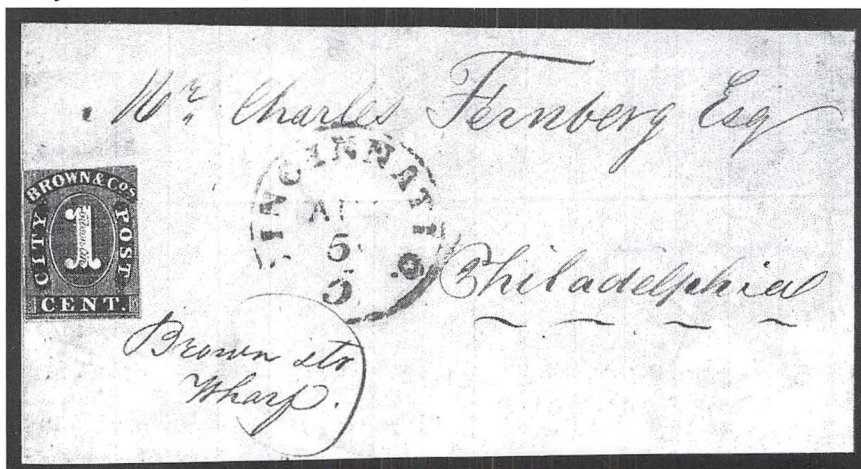 Mr. Charles Fernberg Esq
BROWN & Cos
CITY POST
1
CENT.
CINCINNATI O.
5
5
Philadelphia
Brown str
Wharf.